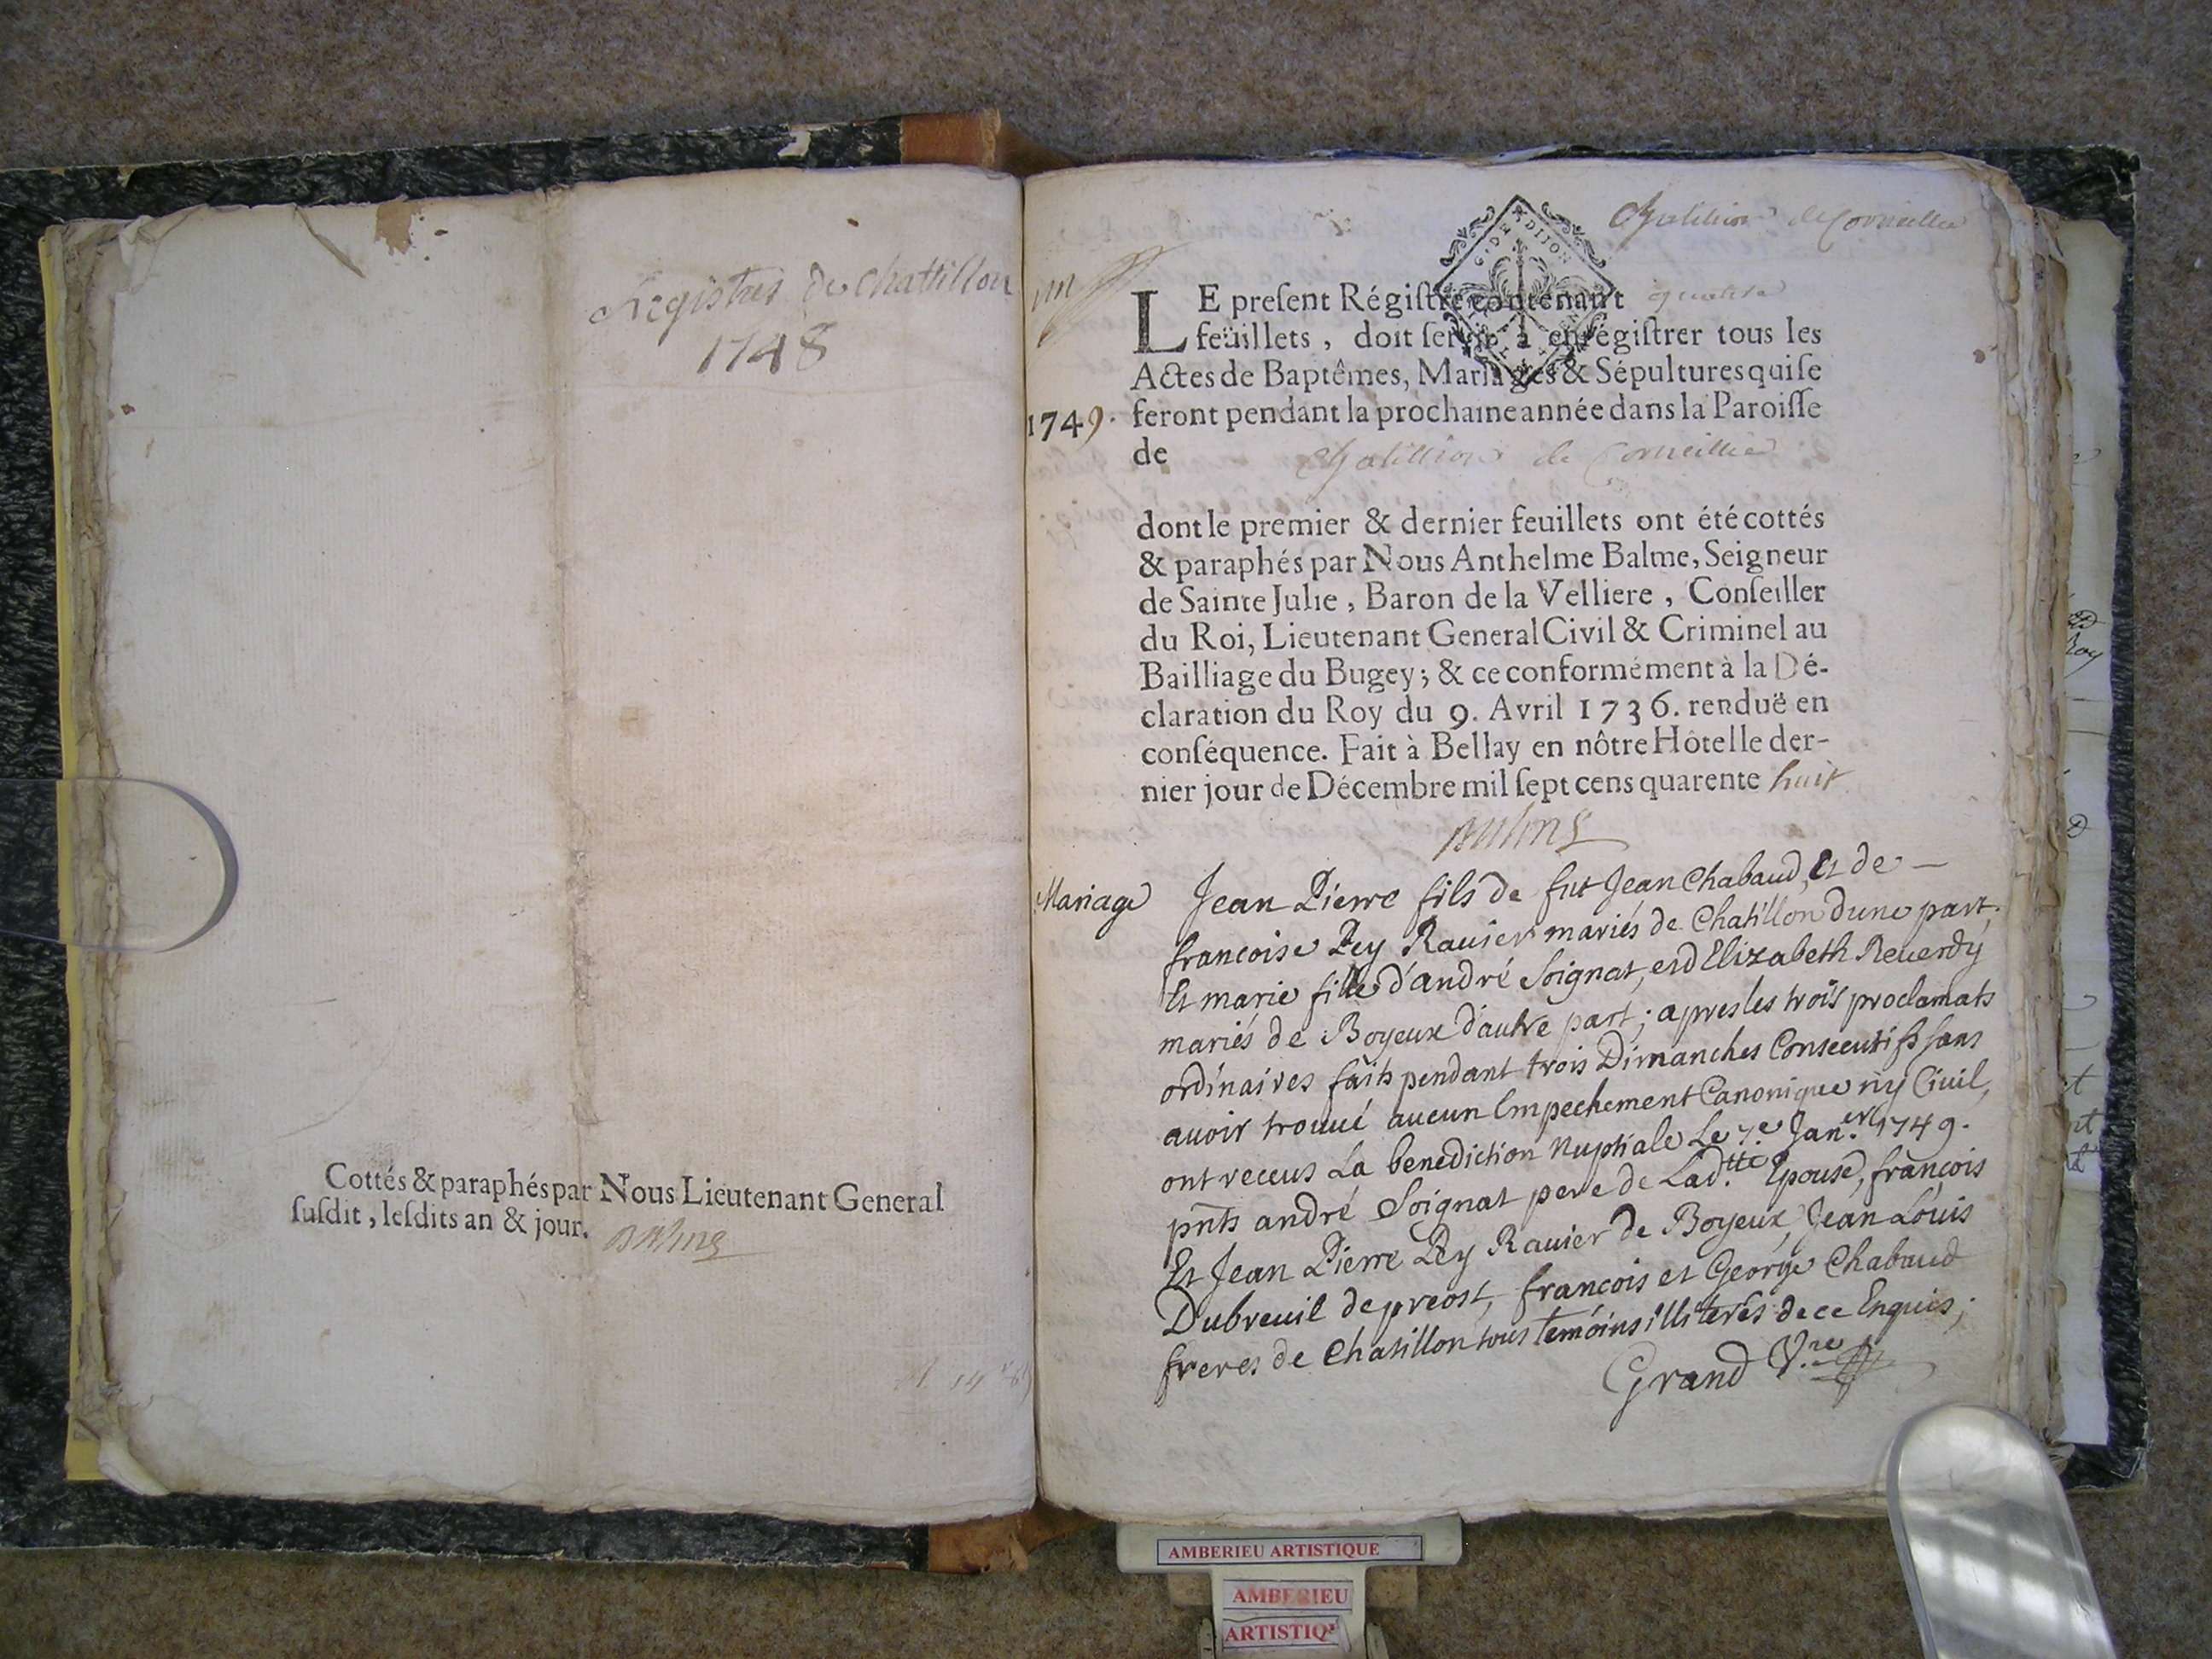 Registres de chattillon
1748
Cottés & paraphés par Nous Lieutenant General
ſuſdit, leſdits an & jour. Balme
Chatillion de Corneillie
G. DE DIJON
LE preſent Régiſtre contenant quatre
feüillets, doit ſervir à enrégiſtrer tous les
Actes de Baptêmes, Mariages & Sépultures qui ſe
1749. feront pendant la prochaine année dans la Paroiſſe
de Chatillion de Corneillie
dont le premier & dernier feuillets ont été cottés
& paraphés par Nous Anthelme Balme, Seigneur
de Sainte Julie, Baron de la Velliere, Conſeiller
du Roi, Lieutenant General Civil & Criminel au
Bailliage du Bugey; & ce conformément à la Dé-
claration du Roy du 9. Avril 1736. renduë en
conſéquence. Fait à Bellay en nôtre Hôtel le der-
nier jour de Décembre mil ſept cens quarente huit
Balme
Mariage Jean Pierre fils de fut Jean Chabaud, Et de —
francoise Pey Rauier mariés de Chatillon dune part.
Et marie fille d'andré Soignat, et d'Elizabeth Reuerdy
mariés de Boyeux d'autre part; apres les trois proclamats
ordinaires faits pendant trois Dimanches Consecutifs sans
auoir trouué aucun Empechement Canonique ny Ciuil,
ont receus La benediction Nuptiale Le 7.e Jan.er 1749.
pnts andré Soignat pere de Lad.tte Epouse, francois
Et Jean Pierre Pey Rauier de Boyeux, Jean Louis
Dubreuil de preost, francois et George Chabaud
freres de Chatillon tous temoins illiterés de ce Enquis;
Grand V.re
AMBERIEU ARTISTIQUE
AMBERIEU
ARTISTIQ